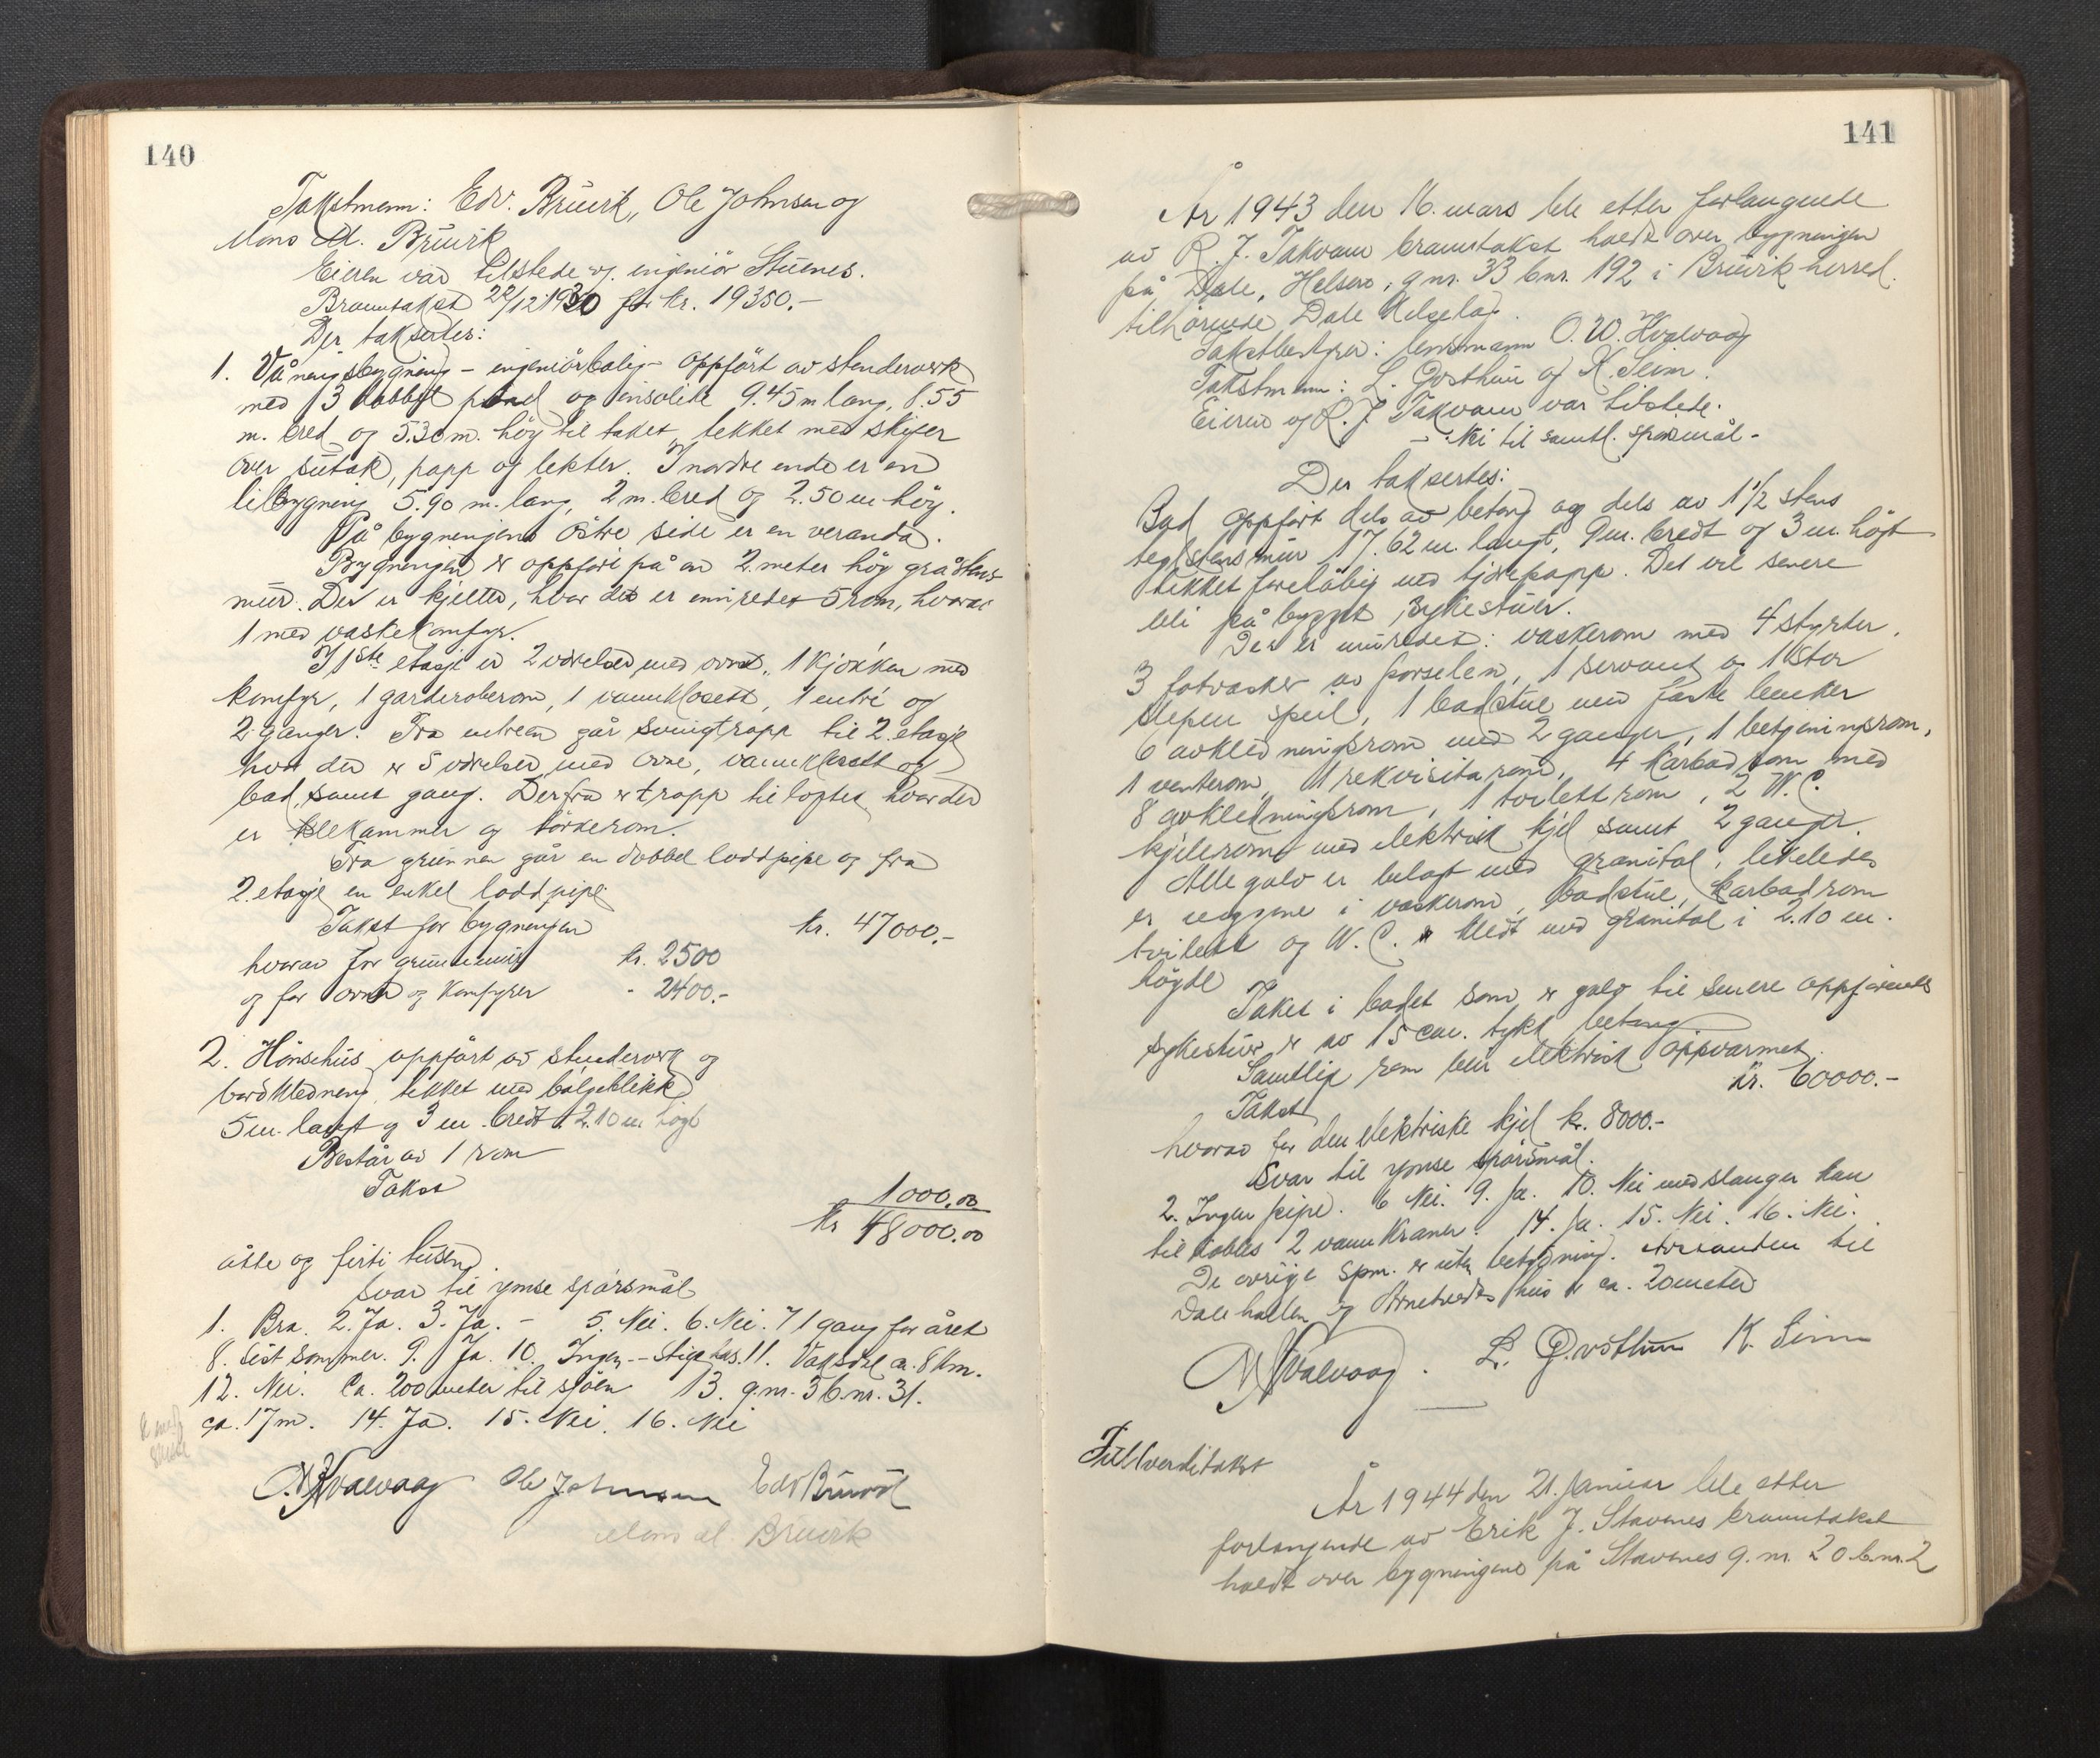 140
Takstmenn: Edv. Bruvik, Ole Johnsen og
Mons M. Bruvik
Eieren var tilstede v/ ingeniör Stuenes.
Branntakst 22/12 1930 for kr. 19350.-
Der taksertes:
1. Våningsbygning - ingeniörbolig - oppfört av stenderverk
med 3 dobbelt panel og insolite 9.45 m lang, 8.55
m. bred og 5.30 m. höy til taket, tekket med skifer
over sutak, papp og lekter. I nordre ende er en
tilbygning 5.90 m. lang, 2 m. bred og 2.50 m höy.
På bygningens östre side er en veranda.
Bygningen er oppfört på en 2 meter höy gråstens-
mur. Der er kjeller, hvor det er innredet 5 rom, hvorav
1 med vaskekomfyr.
I 1ste etasje er 2 værelser med ovne, 1 kjökken med
komfyr, 1 garderoberom, 1 vannklosett, 1 entré og
2 ganger. Fra entreen går svingtrapp til 2. etasje
hvor der er 5 værelser med ovne, vannklosett og
bad, samt gang. Derfra er trapp til loftet, hvor der
er klekammer og törkerom.
Fra grunnen går en dobbel loddpipe og fra
2. etasje en enkel loddpipe.
Takst for bygningen kr. 47000.-
hvorav for grunnmur kr. 2500
og for ovner og komfyrer - 2400.-
2. Hönsehus oppfört av stenderverk og
bordkledning, tekket med bölgeblikk
5 m. langt og 3 m. bredt. 2.10 m högt
Består av 1 rom
Takst 1000.00
Kr 48000.00
åtte og firti tusen.
Svar til ymse spörsmål
1. Bra. 2. Ja. 3. Ja. - 5. Nei. 6. Nei. 7 1 gang for året
8. Sist sommer. 9. Ja. 10. Ingen - Stige has. 11. Vaksdal ca. 8 km.
12. Nei. Ca. 200 meter til sjöen 13. g.nr. 3 b.nr. 31.
ca. 17 m. 14. Ja. 15. Nei. 16. Nei
O.W. Hvalvaag Ole Johnsen Edv Bruvik
Mons M. Bruvik
141
År 1943 den 16. mars ble etter forlangende
av R. J. Takvam branntakst holdt over bygningen
på Dale, Helsero, g.nr. 33 b.nr. 192 i Bruvik herred.
tilhörende Dale Helselag.
Takstbestyrer: lensmann O. W. Hvalvaag
Takstmenn: L. Gvosthun og K. Seim.
Eieren v/ R. J. Takvam var tilstede.
- Nei til samtl. spörsmål -
Der taksertes:
Bad oppfört dels av betong og dels av 1 1/2 stens
teglstensmur 17.62 m. langt, 9 m. bredt og 3 m. högt
tekket forelöbig med tjærepapp. Det vil senere
bli på bygget sykestuer.
Der er innredet: vaskerom med 4 styrter,
3 fotvasker av porselen, 1 servant og 1 stor
slepen speil, 1 badstue med faste benker
6 avkledningsrom med 2 ganger, 1 betjeningsrom,
1 venterom, 1 rekvisita rom, 4 karbadrom med
8 avkledningsrom, 1 toilettrom, 2 W.C.
kjelerom med elektrisk kjel samt 2 ganger.
Alle golv er belagt med granitol, likeledes
er veggene i vaskerom, badstue, karbadrom
toilett og W.C. er kledt med granitol i 2.10 m.
högde
Taket i badet som er golv til senere oppförende
sykestuer er av 15 cm. tykk betong
Samtlige rom blir elektrisk oppvarmet.
Takst kr. 60000.-
hvorav for den elektriske kjel kr. 8000.-
Svar til ymse spörsmål.
2. Ingen pipe. 6 Nei. 9. Ja. 10. Nei men slanger kan
til kobles 2 vannkraner. 14. Ja. 15. Nei. 16. Nei.
De övrige spm. er uten betydning. Avstanden til
Dalehallen og Arnetvedts hus er ca. 20 meter
O.W. Hvalvaag. L. Gvosthun K. Seim
Fullverditakst
År 1944 den 21. januar ble etter
forlangende av Erik J. Stavenes branntakst
holdt over bygningene på Stavenes g.nr. 20 b.nr. 2